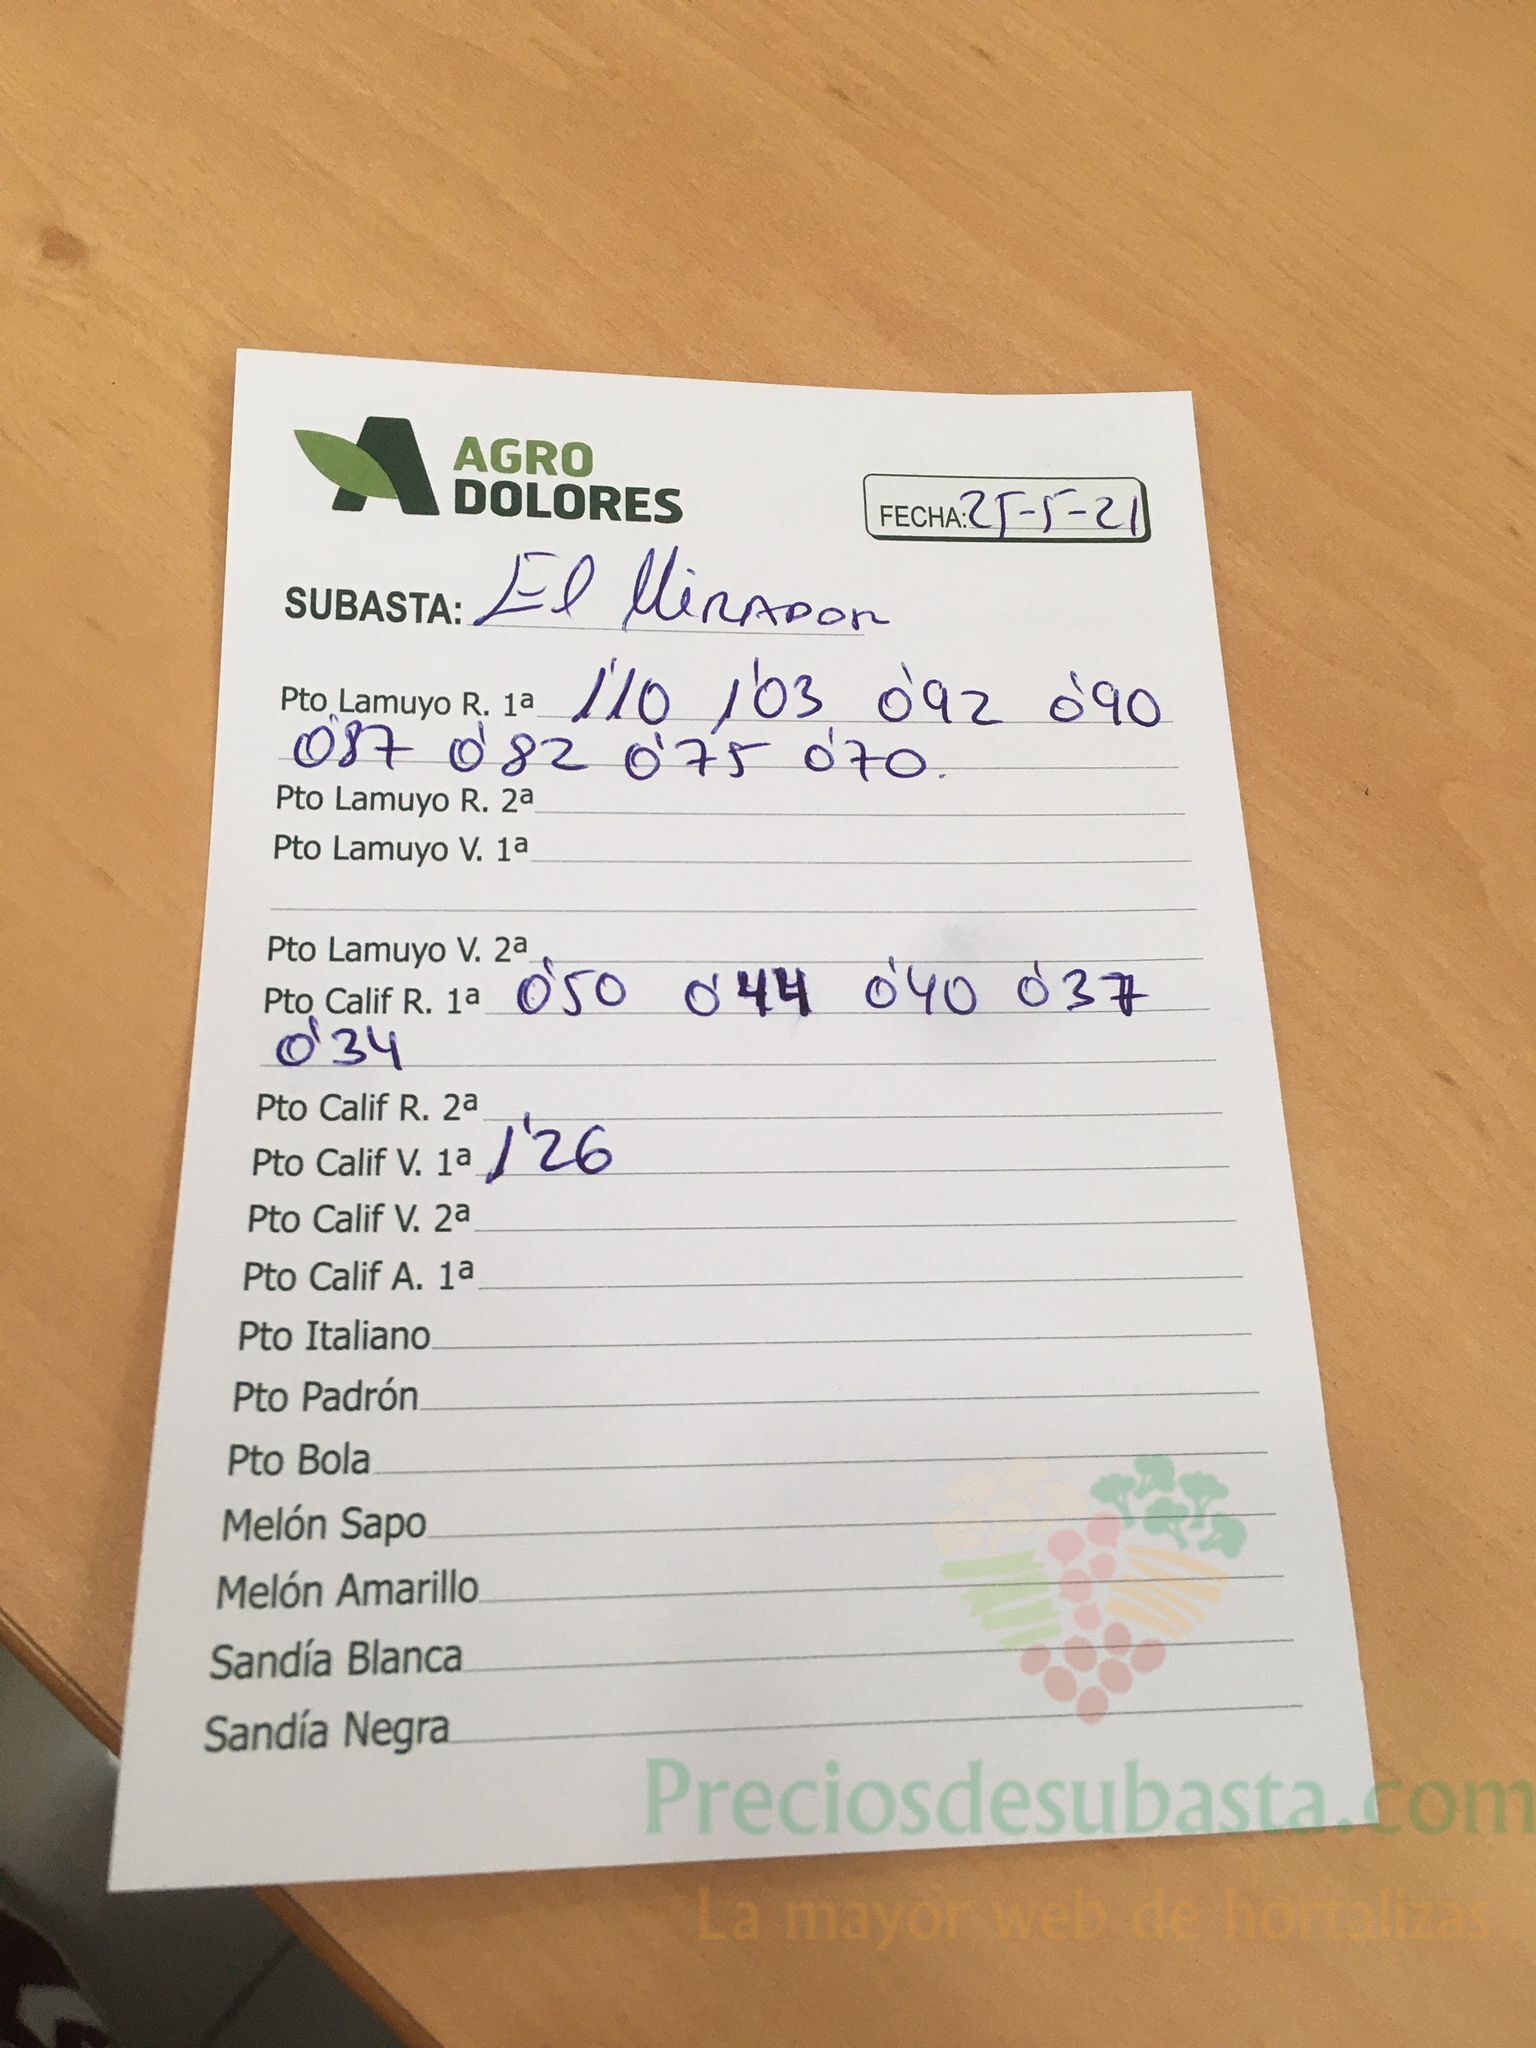 AGRO
DOLORES
FECHA: 25-5-21
SUBASTA: El Mirador
Pto Lamuyo R. 1ª 1'10 1'03 0'92 0'90
0'87 0'82 0'75 0'70.
Pto Lamuyo R. 2ª
Pto Lamuyo V. 1ª
Pto Lamuyo V. 2ª
Pto Calif R. 1ª 0'50 0'44 0'40 0'37
0'34
Pto Calif R. 2ª
Pto Calif V. 1ª 1'26
Pto Calif V. 2ª
Pto Calif A. 1ª
Pto Italiano
Pto Padrón
Pto Bola
Melón Sapo
Melón Amarillo
Sandía Blanca
Sandía Negra
Preciosdesubasta.com
La mayor web de hortalizas